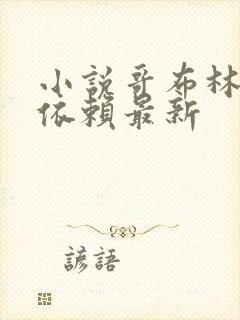 小說哥布林
依賴最新
諺語